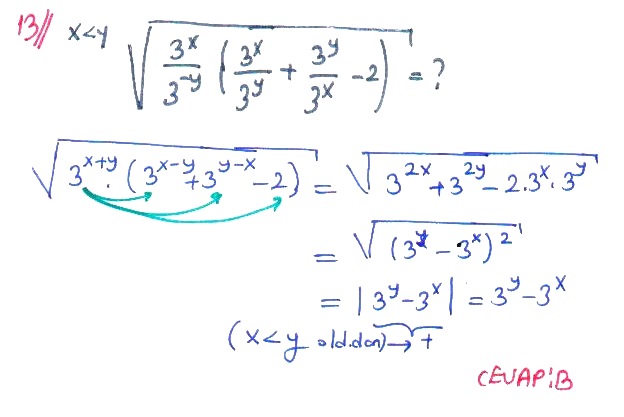 13// x<y √(3^x/3^-y (3^x/3^y + 3^y/3^x - 2)) = ?
√(3^x+y · (3^x-y + 3^y-x - 2)) = √(3^2x + 3^2y - 2.3^x.3^y)
= √((3^y - 3^x)^2)
= |3^y - 3^x| = 3^y - 3^x
(x<y old.dan) → +
CEVAP:B